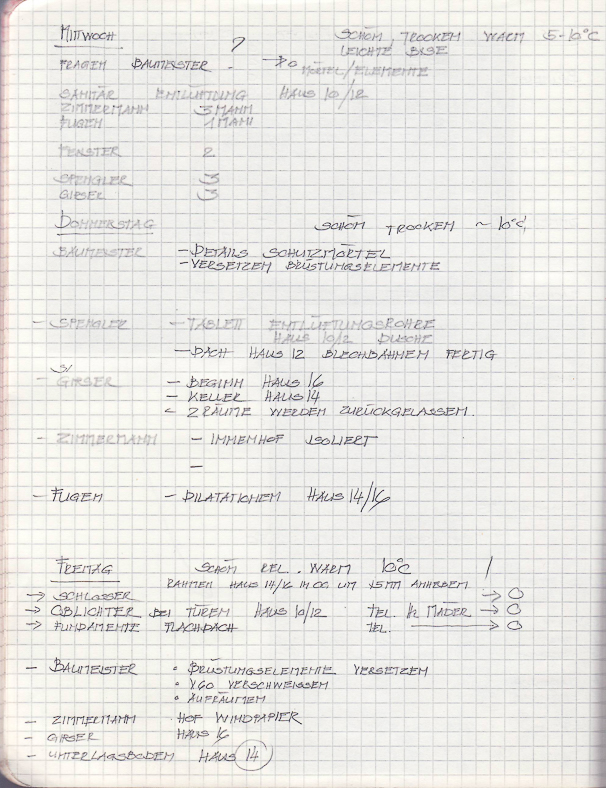 MITTWOCH ? SCHÖN, TROCKEN WARM 5-10°C
LEICHTE BISE
FRAGEN BAUMEISTER. → MÖRTEL/ELEMENTE
SANITÄR ENTLÜFTUNG HAUS 10/12
ZIMMERMANN 3 MANN
FUGEN 1 MANN
FENSTER 2
SPENGLER 3
GIPSER 3
DONNERSTAG SCHÖN TROCKEN ~ 10°C
BAUMEISTER - DETAILS SCHUTZMÖRTEL
- VERSETZEN BRÜSTUNGSELEMENTE
- SPENGLER - TABLETT ENTLÜFTUNGSROHRE
HAUS 10/12 DUSCHE
- DACH HAUS 12 BLECHBAHNEN FERTIG
- GIPSER - BEGINN HAUS 16
- KELLER HAUS 14
2 RÄUME WERDEN ZURÜCKGELASSEN.
- ZIMMERMANN - INNENHOF ISOLIERT
-
- FUGEN - DILATATIONEN HAUS 14/16
FREITAG SCHÖN REL. WARM 10°C /
RAHMEN HAUS 14/16 UM 15MM ANHEBEN
→ SCHLOSSER → O
→ OBLICHTER BEI TÜREN HAUS 10/12 TEL. MÄDER → O
→ FUNDAMENTE FLACHDACH TEL. → O
- BAUMEISTER • BRÜSTUNGSELEMENTE VERSETZEN
• V60 VERSCHWEISSEN
• AUFRÄUMEN
- ZIMMERMANN • HOF WINDPAPIER
- GIPSER HAUS 16
- UNTERLAGSBODEN HAUS 14